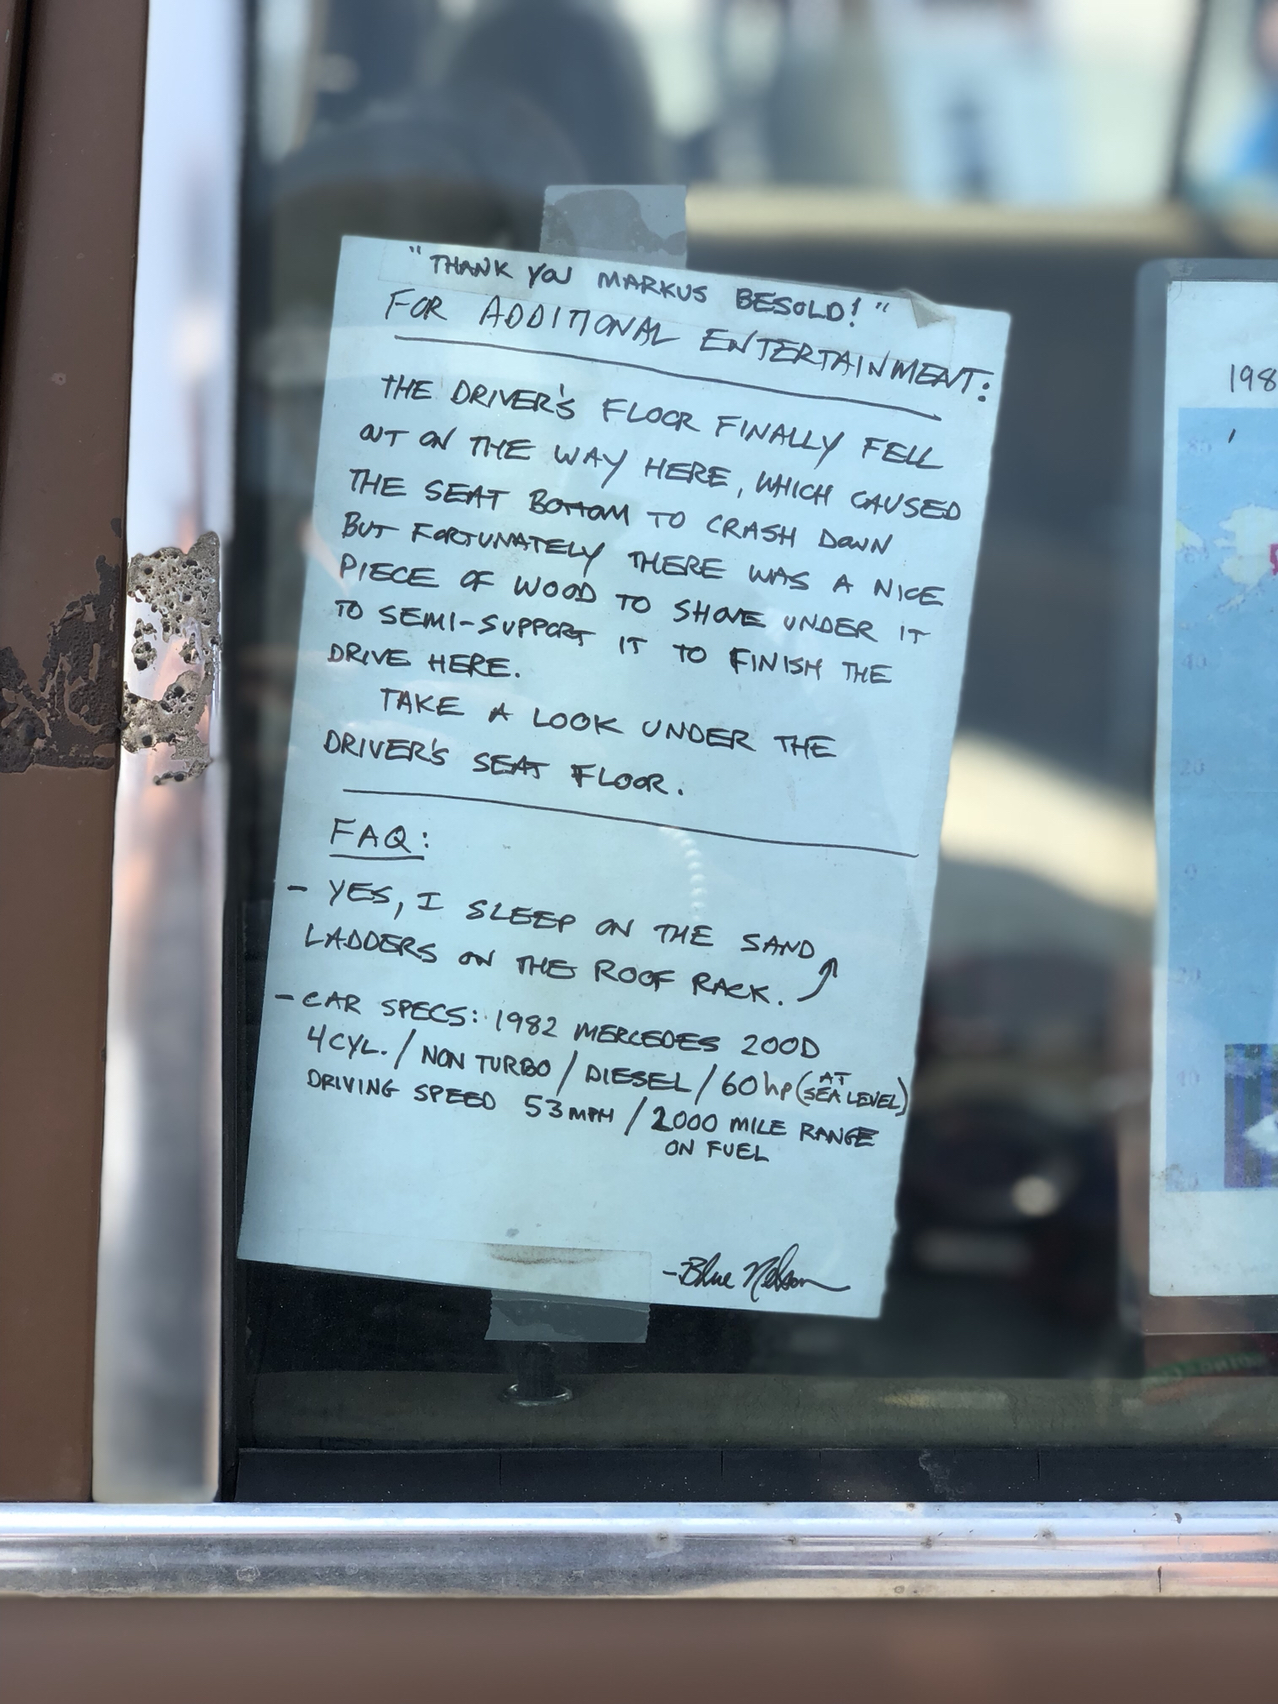 "THANK YOU MARKUS BESOLD!"
FOR ADDITIONAL ENTERTAINMENT:
THE DRIVER'S FLOOR FINALLY FELL
OUT ON THE WAY HERE, WHICH CAUSED
THE SEAT BOTTOM TO CRASH DOWN
BUT FORTUNATELY THERE WAS A NICE
PIECE OF WOOD TO SHOVE UNDER IT
TO SEMI-SUPPORT IT TO FINISH THE
DRIVE HERE.
TAKE A LOOK UNDER THE
DRIVER'S SEAT FLOOR.
FAQ:
- YES, I SLEEP ON THE SAND
LADDERS ON THE ROOF RACK.
- CAR SPECS: 1982 MERCEDES 200D
4CYL. / NON TURBO / DIESEL / 60hp (AT SEA LEVEL)
DRIVING SPEED 53 MPH / 2000 MILE RANGE
ON FUEL
- Blue Nelson
198